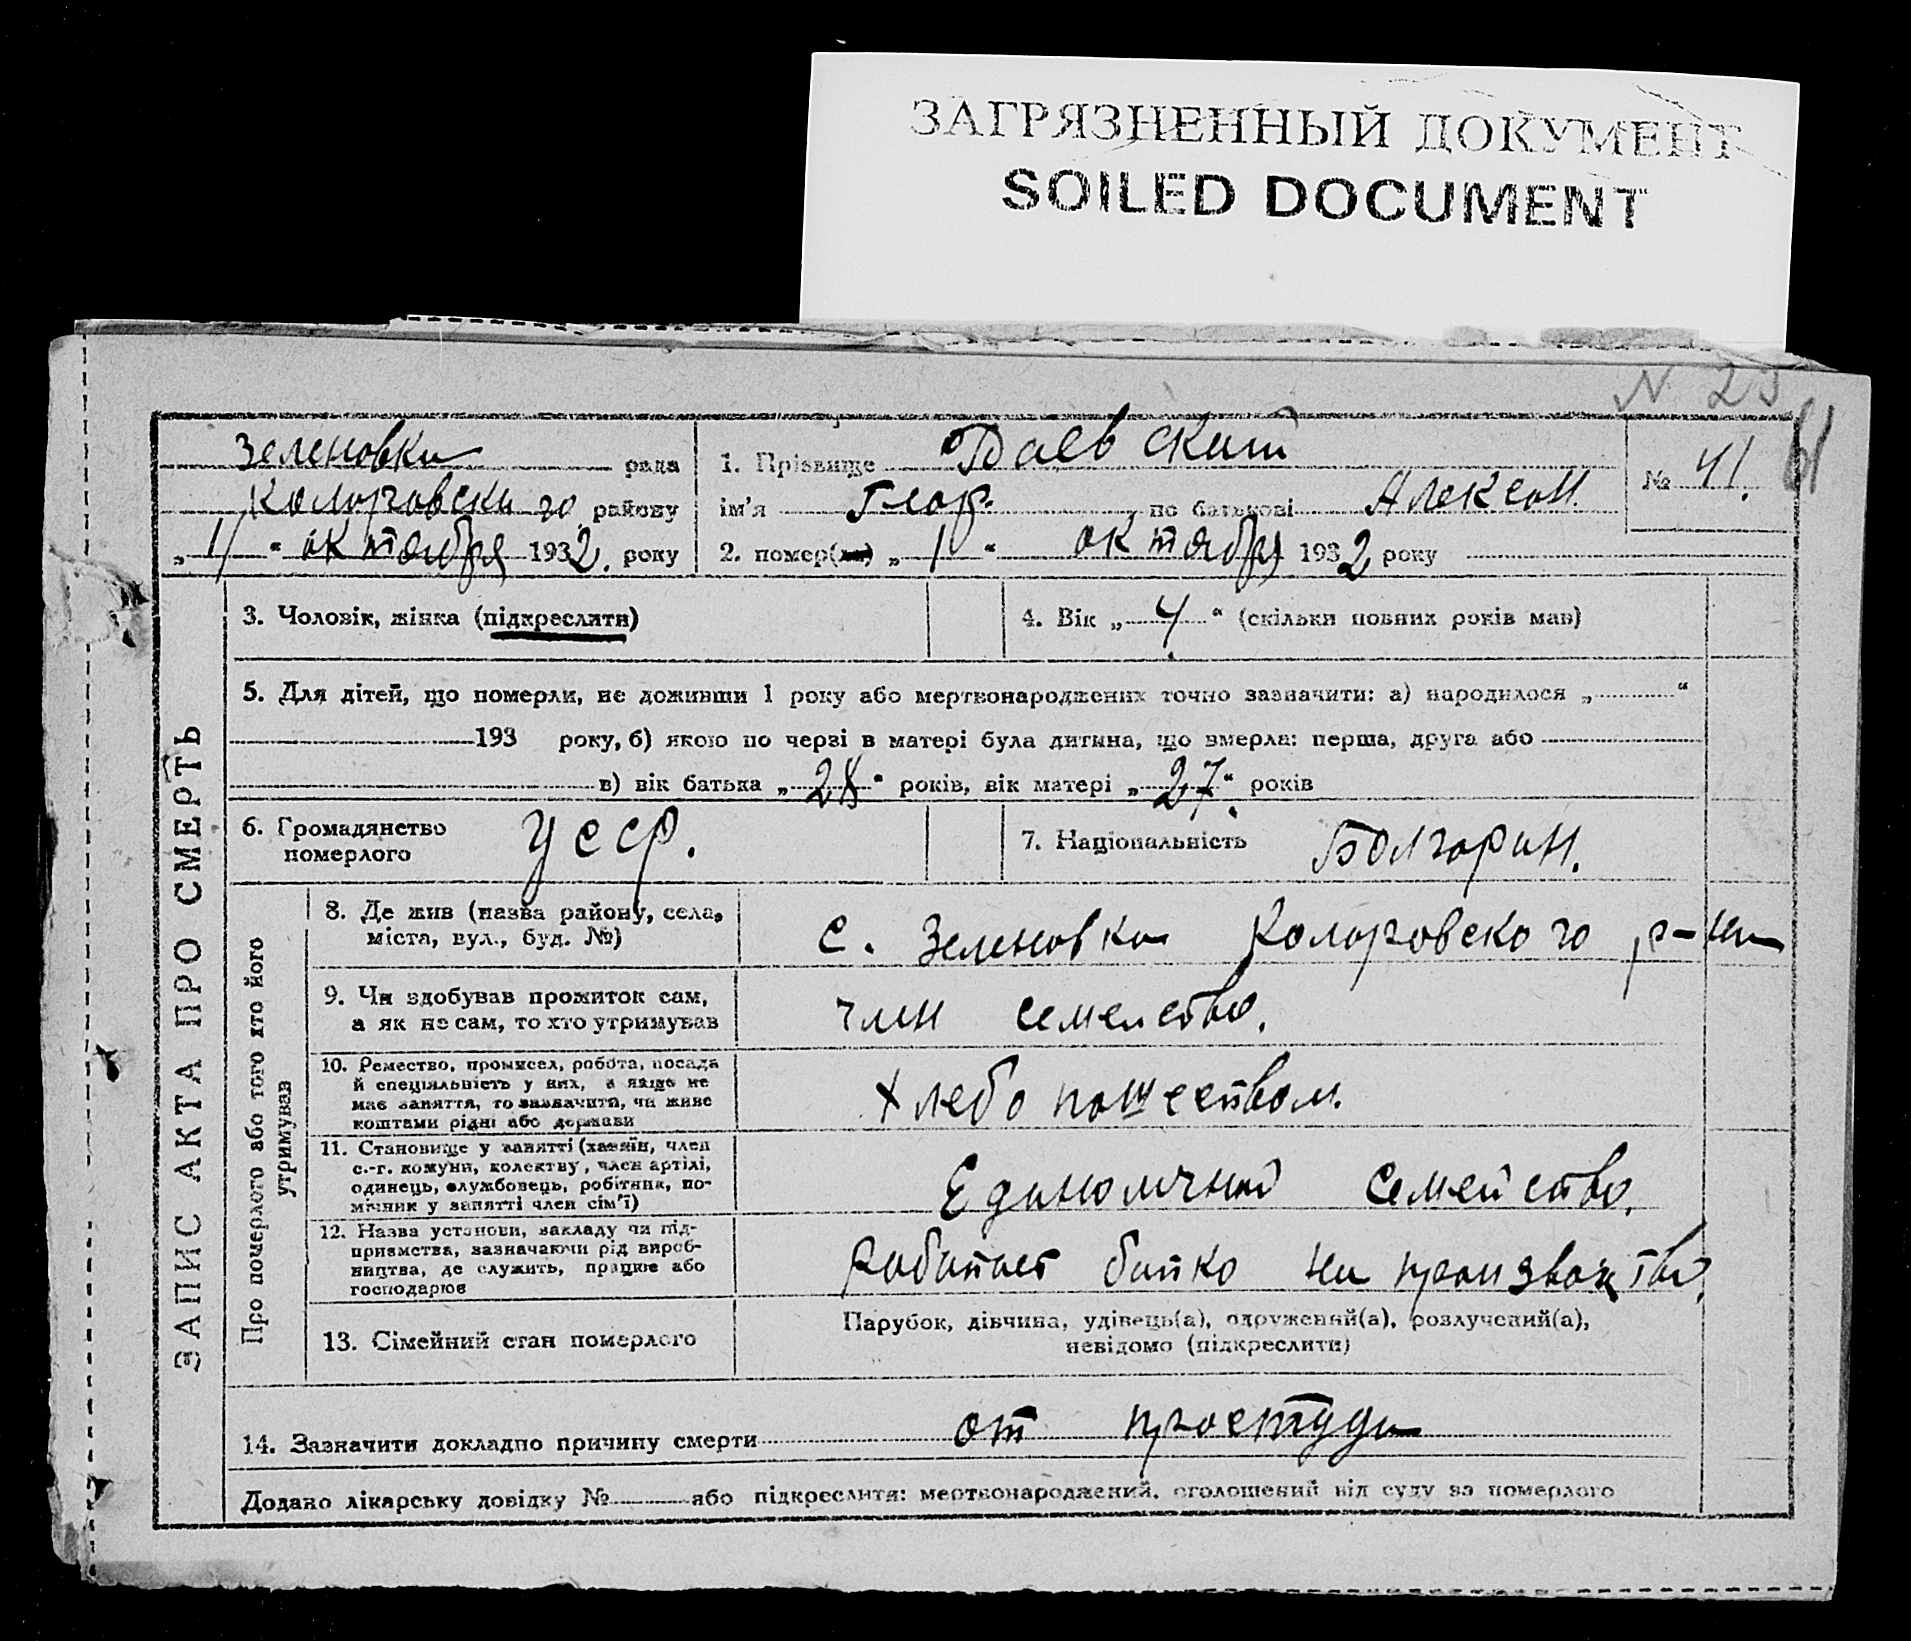 ЗАГРЯЗНЕННЫЙ ДОКУМЕНТ
SOILED DOCUMENT
N 23
Зеленовка рада
Коларовского району
„ 11 “ октября 1932. року
1. Прізвище Баевский
ім'я Геор. по батькові Алексан.
2. помер(ла) „ 1 “ октября 1932 року
№ 41.
ЗАПИС АКТА ПРО СМЕРТЬ
3. Чоловік, жінка (підкреслити)
4. Вік „ 4 “ (скільки повних років мав)
5. Для дітей, що померли, не доживши 1 року або мертвонароджених точно зазначити: а) народилося „ “
193 року, б) якою по черзі в матері була дитина, що вмерла: перша, друга або
в) вік батька „ 28 “ років, вік матері „ 27 “ років
6. Громадянство
померлого
УССР.
7. Національність Болгарин.
Про померлого або того хто його
утримував
8. Де жив (назва району, села,
міста, вул., буд. №)
с. Зеленовка Коларовского р-на
9. Чи здобував прожиток сам,
а як не сам, то хто утримував
член семейства.
10. Ремество, промисел, робота, посада
й спеціяльність у них, а якщо не
має заняття, то зазначити, чи живе
коштами рідні або держави
Хлебопашеством.
11. Становище у занятті (хазяїн, член
с.-г. комуни, колектву, член артілі,
одинець, службовець, робітник, по-
мічник у занятті член сім'ї)
Единоличной семейство.
12. Назва установи, закладу чи під-
приємства, зазначаючи рід вироб-
ництва, де служить, працює або
господарює
Работает батко на произвоктва.
13. Сімейний стан померлого
Парубок, дівчина, удівець(а), одружений(а), розлучений(а),
невідомо (підкреслити)
14. Зазначити докладно причину смерти от простуды
Додано лікарську довідку № або підкреслити: мертвонароджений, оголошений від суду за померлого